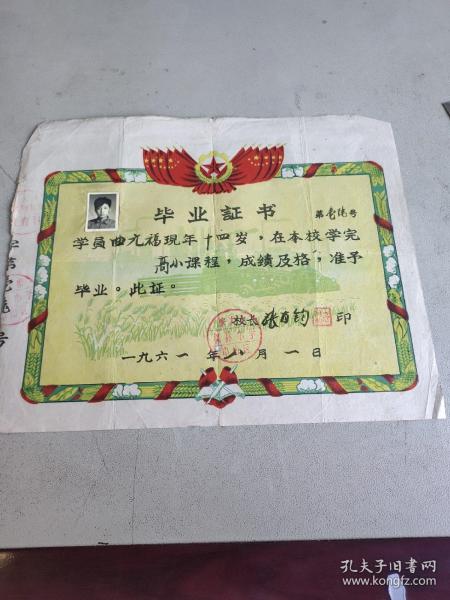 毕业証书
学员曲光福現年十四岁，在本校学完
高小课程，成績及格，准予
毕业。此証。
校长 张 印
一九六一年八月一日
孔夫子旧书网
www.kongfz.com